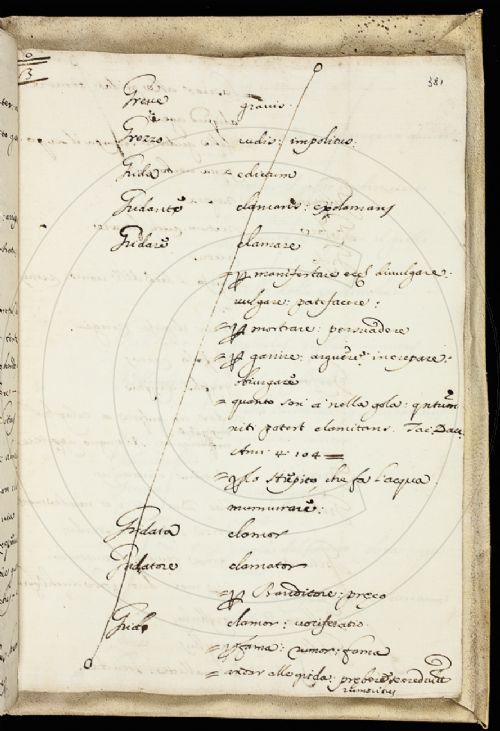 381
Greve gravis.
Grozzo rudis: impolitus.
Grida edictum
Gridante clamans: exclamans
Gridare clamare
= p manifestare vel divulgare:
vulgare: patefacere:
= p mostrare: persuadere
= p garrire: arguere: increpare:
obiurgare
= quanto son' a nella gola:
niti potest clamitans. Tac:
Ann: 4. 104 =
= p lo strepito che fa l'acqua:
murmurare:
Gridata clamor
Gridatore clamator
= p Banditore: preco
Grido clamor: vociferatio.
= p fama: rumor: fama
= andar alle grida:
rumoribus